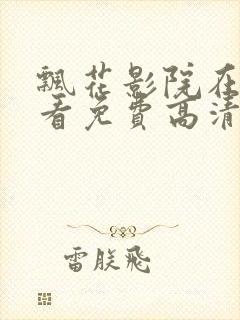 飘花影院在
看免费高清
雷朕飛